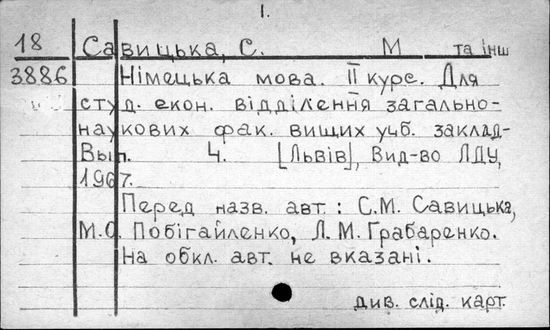 1.
18 Савицька, С. М та інш
3886 Німецька мова. II курс. Для
студ. екон. відділення загально-
наукових фак. вищих учб. заклад-
Вып. 4. [Львів], Вид-во ЛДУ,
1967.
Перед назв. авт.: С.М. Савицька,
М.О. Побігайленко, Л.М. Грабаренко.
На обкл. авт. не вказані.
див. слід. карт